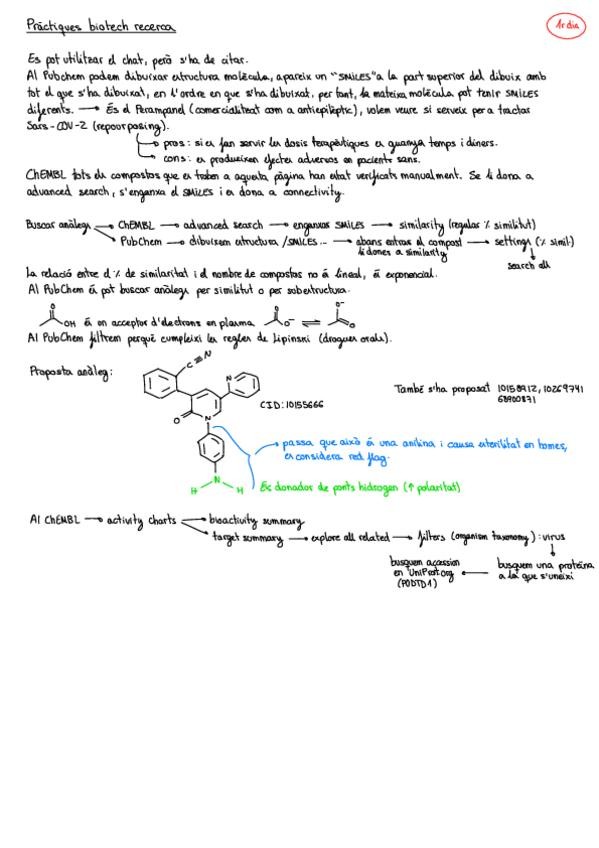 Pràctiques biotech recerca
1r dia
Es pot utilitzar el chat, però s'ha de citar.
Al Pubchem podem dibuixar estructura molècula, apareix un "SMILES" a la part superior del dibuix amb
tot el que s'ha dibuixat, en l'ordre en que s'ha dibuixat, per tant, la mateixa molècula pot tenir SMILES
diferents. → És el Perampanel (comercialitzat com a antiepilèptic), volem veure si serveix per a tractar
Sars-COV-2 (repourposing).
pros: si es fan servir les dosis terapèutiques es guanya temps i diners.
cons: es produeixen efectes adversos en pacients sans.
ChEMBL tots els compostos que es troben a aquesta pàgina han estat verificats manualment. Se li dona a
advanced search, s'enganxa el SMILES i es dona a connectivity.
Buscar anàlegs → ChEMBL → advanced search → enganxar SMILES → similarity (regular % similitut)
PubChem → dibuixem estructura/SMILES... → abans entrar el compost → settings (% simil.)
li dones a similarity
search all
La relació entre el % de similaritat i el nombre de compostos no és lineal, és exponencial.
Al PubChem es pot buscar anàlegs per similitut o per subestructura.
O OH és on acceptor d'electrons en plasma O O⁻ ⇌ O⁻ O
Al PubChem filtrem perquè cumpleixi les regles de Lipinski (drogues orals).
Proposta anàleg:
C≡N
N
O
N
CID: 10155666
També s'ha proposat 10158912, 10269741
68900871
passa que això és una anilina i causa esterilitat en homes,
es considera red flag.
N
H H
És donador de ponts hidrogen (↑ polaritat)
Al ChEMBL → activity charts → bioactivity summary
target summary → explore all related → filters (organism taxonomy): virus
busquem una proteïna
a la que s'uneixi
busquem accession
en UniProt.org
(P0DTD1)